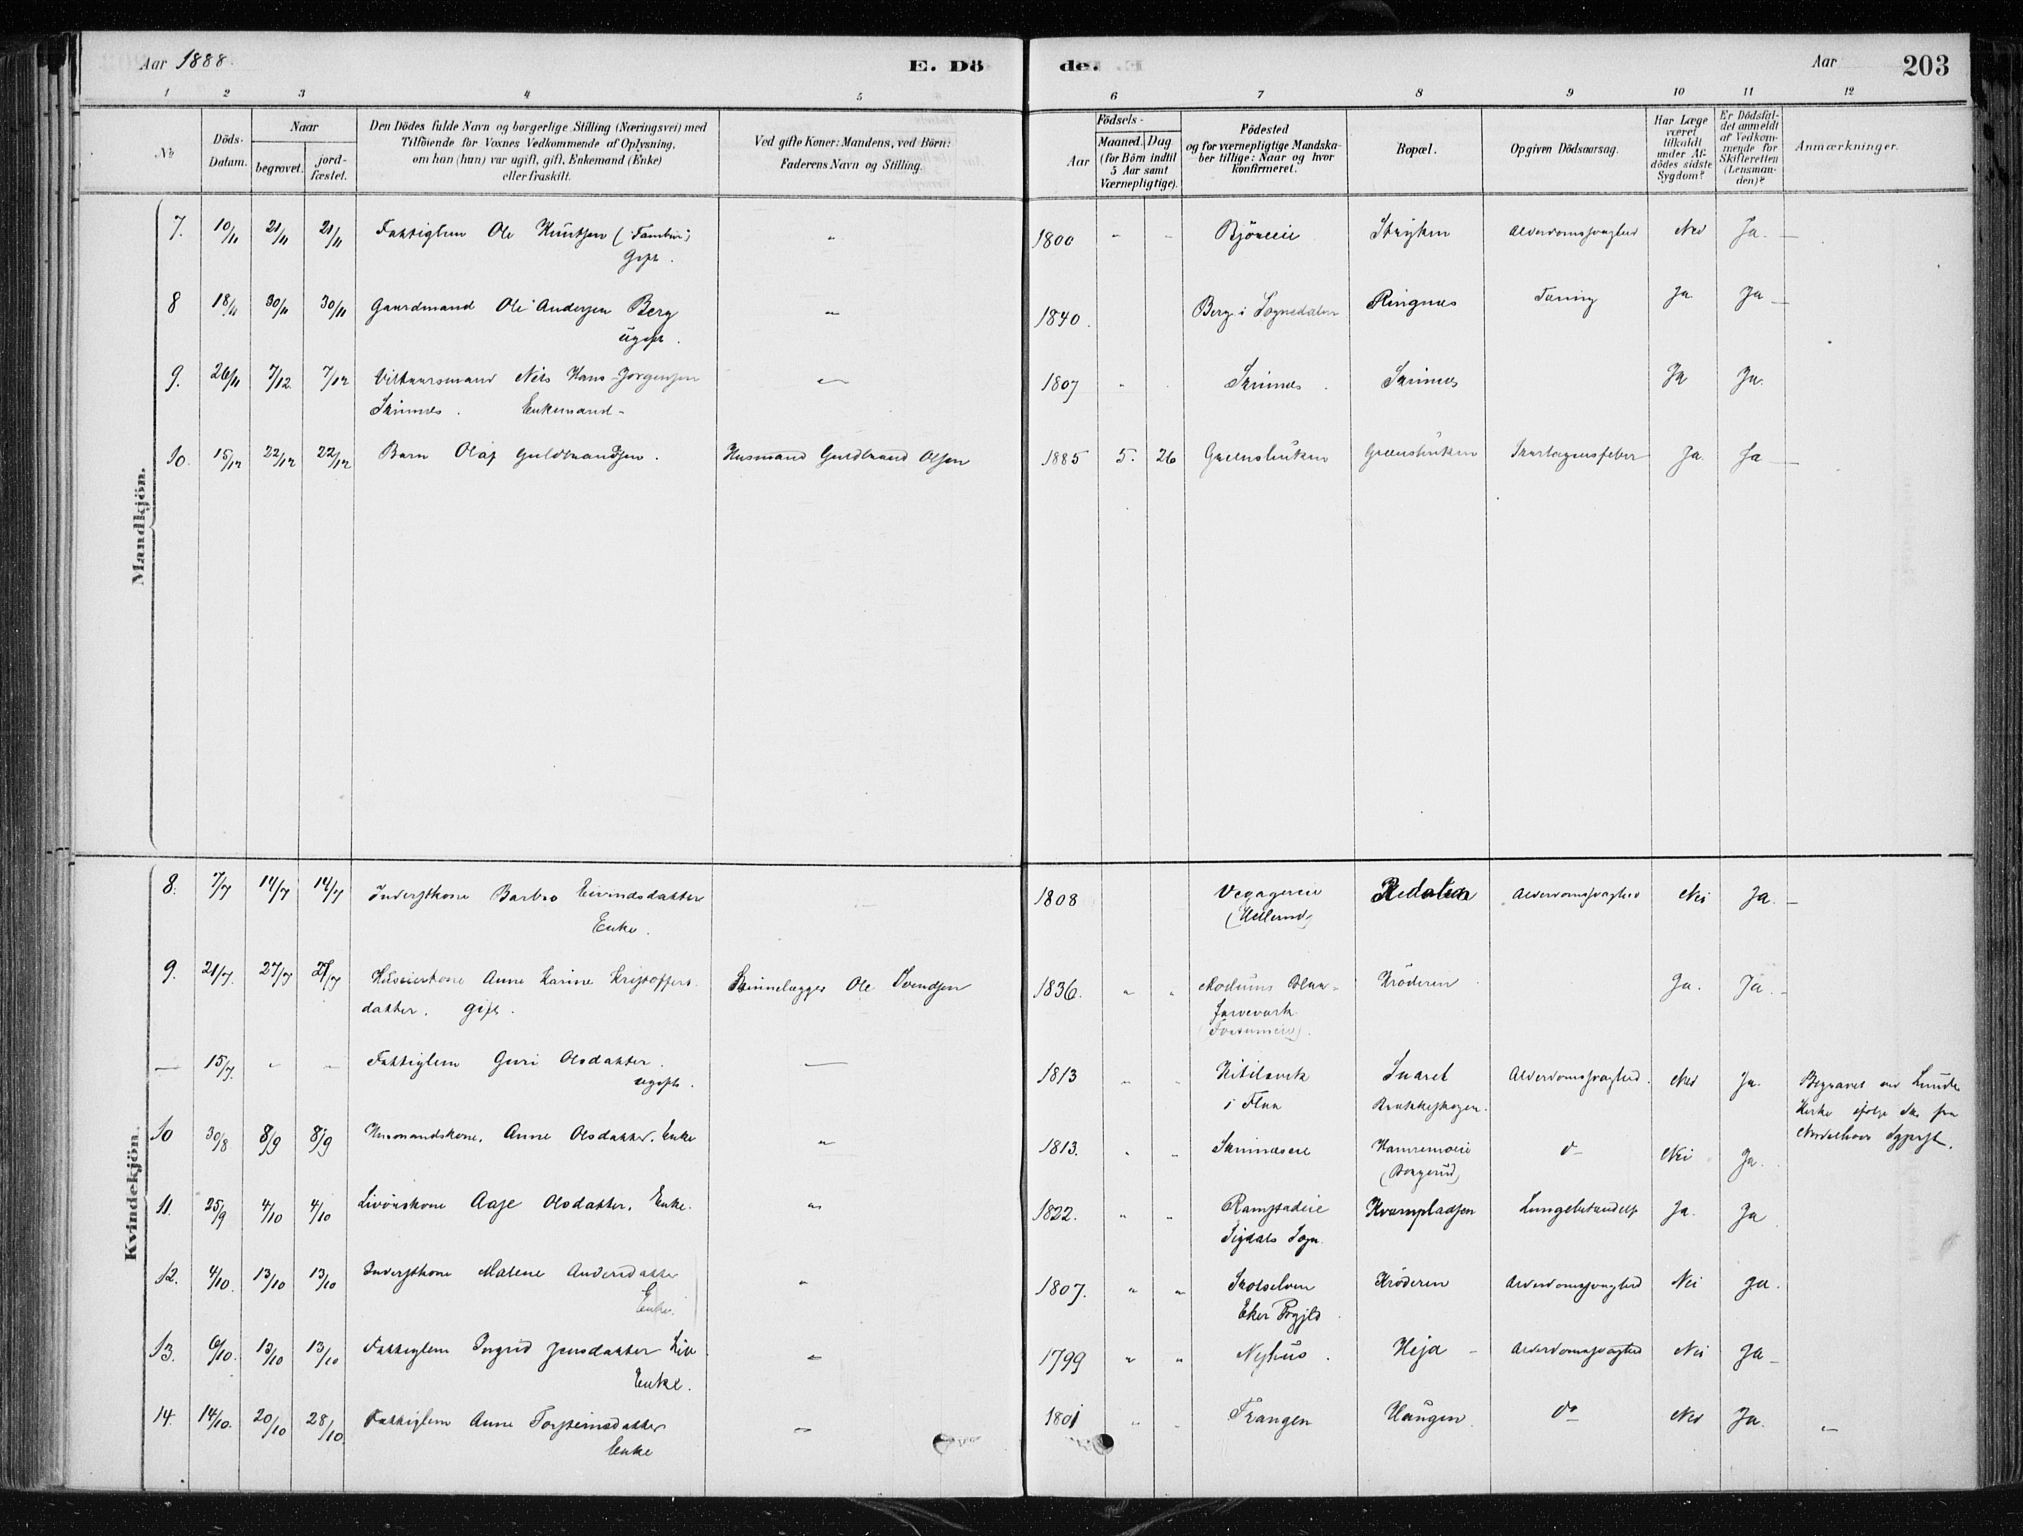 Aar 1888.
E. Dö
de.
Aar
203
1 2 3 4 5 6 7 8 9 10 11 12
No
Döds-
Datum.
Naar
begrovet.
jord-
fæstet.
Den Dödes fulde Navn og borgerlige Stilling (Næringsvei) med
Tilföiende for Voxnes Vedkommende af Oplysning,
om han (hun) var ugift, gift, Enkemand (Enke)
eller fraskilt.
Ved gifte Koner: Mandens, ved Börn:
Faderens Navn og Stilling.
Födsels-
Aar
Maaned. Dag
(for Börn indtil
5 Aar samt
Værnepligtige).
Födested
og for værnepligtige Mandska-
ber tillige: Naar og hvor
konfirmeret.
Bopæl.
Opgiven Dödsaarsag.
Har Læge
været
tilkaldt
under Af-
dödes sidste
Sygdom?
Er Dödsfal-
det anmeldt
af Vedkom-
mende for
Skifteretten
(Lensman-
den)?
Anmærkninger.
Mandkjön.
7. 10/11 21/11 21/11 Fattiglem Ole Knutsen
Gift.
1800 Björeeie Alderdomssvaghed Nei Ja.
8 18/11 30/11 30/11 Gaardmand Ole Andersen Berg
ugift.
1840. Berg i Sognedalen Ringnes Tæring Ja Ja
9. 26/11 7/12 7/12 Vilkaarsmand Nils Hans Jörgensen
Skinnes. Enkemand
1807 Skinnes. Skinnes Ja Ja.
10. 15/12 22/12 22/12 Barn Olaf Guldbrandsen. Husmand Guldbrand Olsen
1885 5. 26 Greenshuken Greenshuken Skarlagensfeber Ja. Ja
Kvindekjön.
8. 7/7 14/7 14/7 Inderstkone Barbro Eivindsdatter
Enke.
1808 Alderdomssvaghed Nei Ja.
9. 21/7 27/7 27/7 Anne Karine Kristoffers-
datter. gift. Ole Svendsen
1836. Modums Blaa-
farveværk
Kröderen Ja. Ja.
— 15/7. Fattiglem Guri Olsdatter.
ugift.
1813
i Flaa
Alderdomssvaghed. Nei Ja. Begravet ved Lunder
Kirke ifölge
10 30/8 8/9 8/9 Husmandskone, Anne Olsdatter. Enke
1813. Skinneseie Hamremoeie
Nei Ja.
11. 25/9 4/10 4/10 Aase Olsdatter. Enke.
1822. Ramstadeie
Sigdals Sogn.
Lungebetændelse Ja. Ja
12. 4/10. 13/10 13/10 Inderstkone Malene Andersdatter
Enke.
1807. Skotselven
Eker Prgjld
Kröderen Alderdomssvaghed Nei Ja.
13. 6/10. 13/10 13/10 Fattiglem Ingrid Jensdatter
Enke.
1799 Nyhus. Heja Alderdomssvaghed Nei Ja
14. 14/10. 20/10 28/10. Fattiglem Anne Torsteinsdatter
Enke
1801 Trangen Haugen. do Nei Ja.